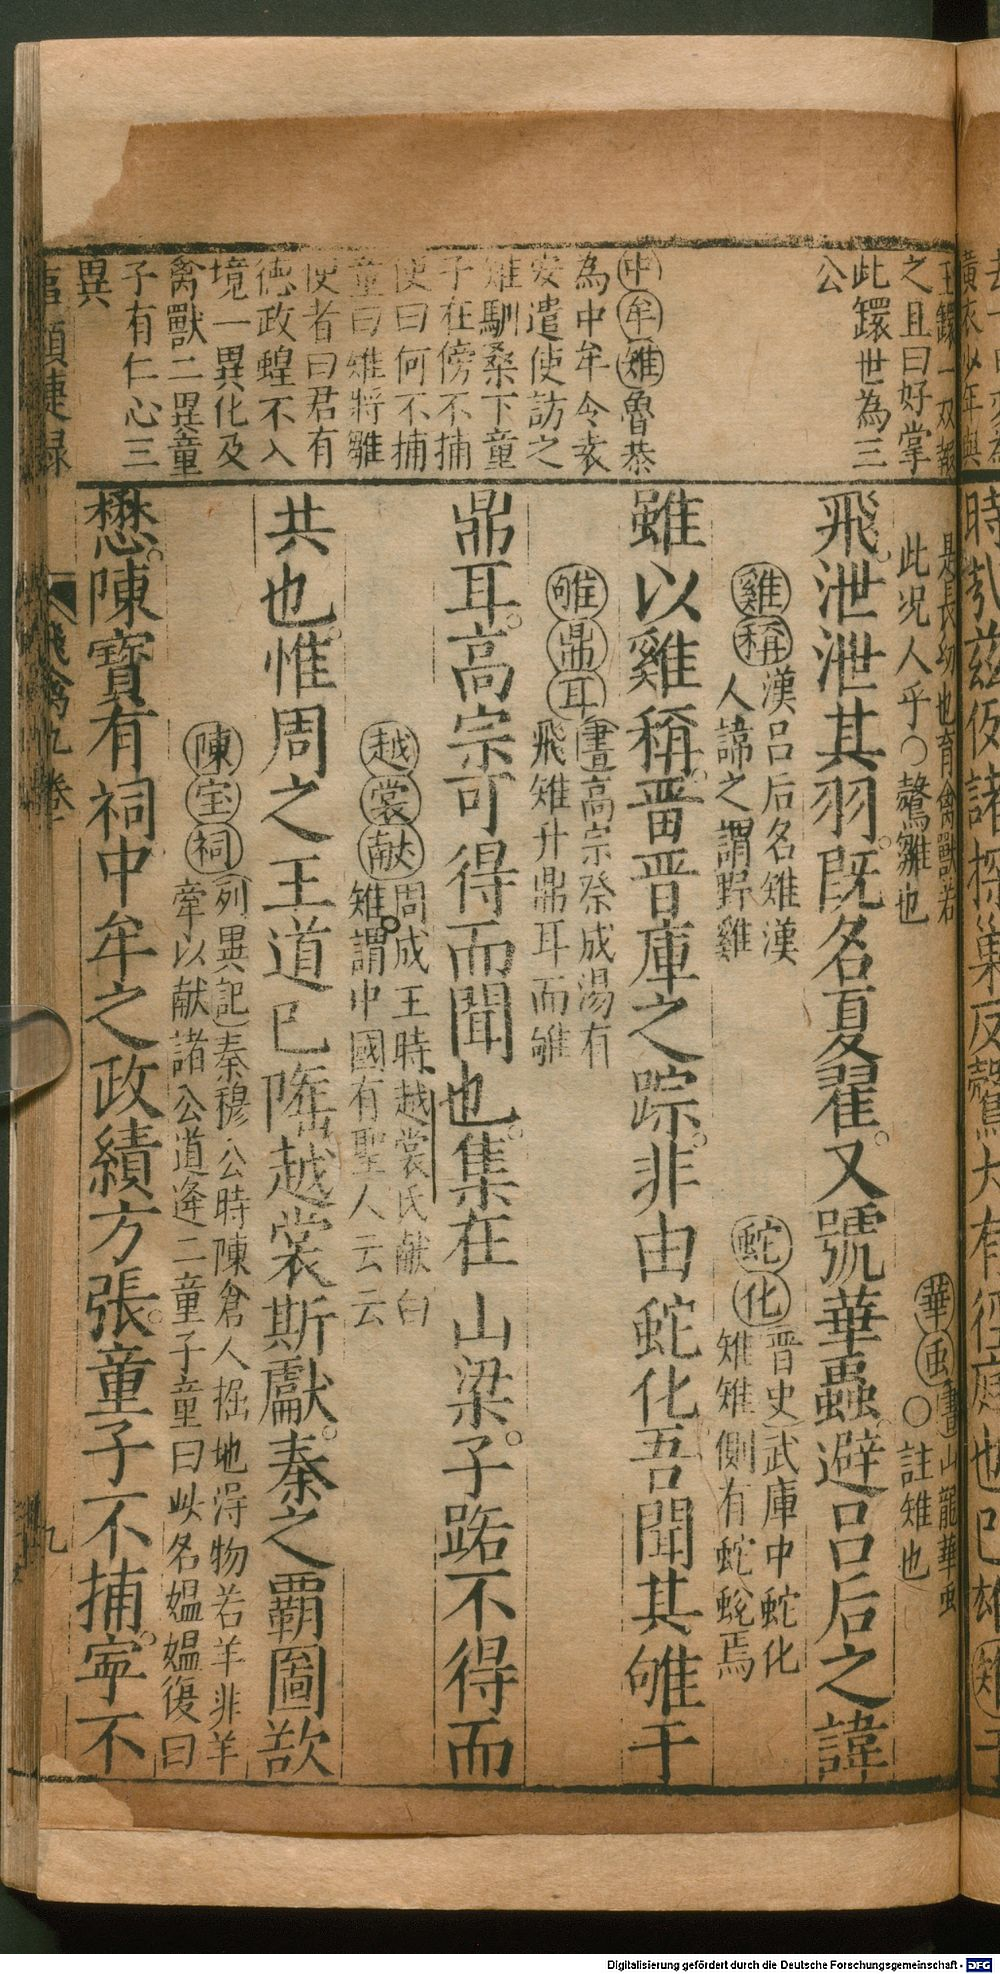 王鐶一双報
之且曰好掌
此鐶世為三
公
中牟雉魯恭
為中牟令袁
安遣使訪之
雉馴桑下童
子在傍不捕
使曰何不捕
童曰雉將雛
使者曰君有
徳政蝗不入
境一異化及
禽獸二異童
子有仁心三
異
是長幼也育禽獸若
此况人乎○鷟雛也
華虫書山龍華虫
○註雉也
飛泄泄其羽既名夏翟又號華蟲避吕后之諱
雞稱漢吕后名雉漢
人諱之謂野雞
蛇化晋史武庫中蛇化
雉雉側有蛇蛻焉
雖以雞稱晋晋庫之踪非由蛇化吾聞其雊于
雊鼎耳書高宗祭成湯有
飛雉升鼎耳而雊
鼎耳高宗可得而聞也集在山梁子路不得而
越裳献周成王時越裳氏献白
雉謂中國有聖人云云
共也惟周之王道已隆越裳斯獻秦之覇圖歆
陳宝祠列異記秦穆公時陳倉人掘地淂物若羊非羊
牽以献諸公道逢二童子童曰此名媪媪復曰
懋陳寶有祠中牟之政績方張童子不捕寕不
事類捷録
飛禽九卷
九